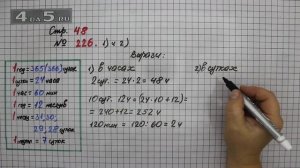 4a5.ru
Стр. 48
№ 226. 1) и 2)
Вырази:
1 год = 365 (366) суток
1 сутки = 24 часа
1 час = 60 мин
1 год = 12 месяцев
1 мес = 31, 30,
29, 28 суток
1 неделя = 7 суток
1) в часах
2 сут. = 24·2 = 48 ч
10 сут. 12 ч = (24·10+12) =
= 240+12 = 252 ч
120 мин = 120:60 = 2 ч
2) в сутках